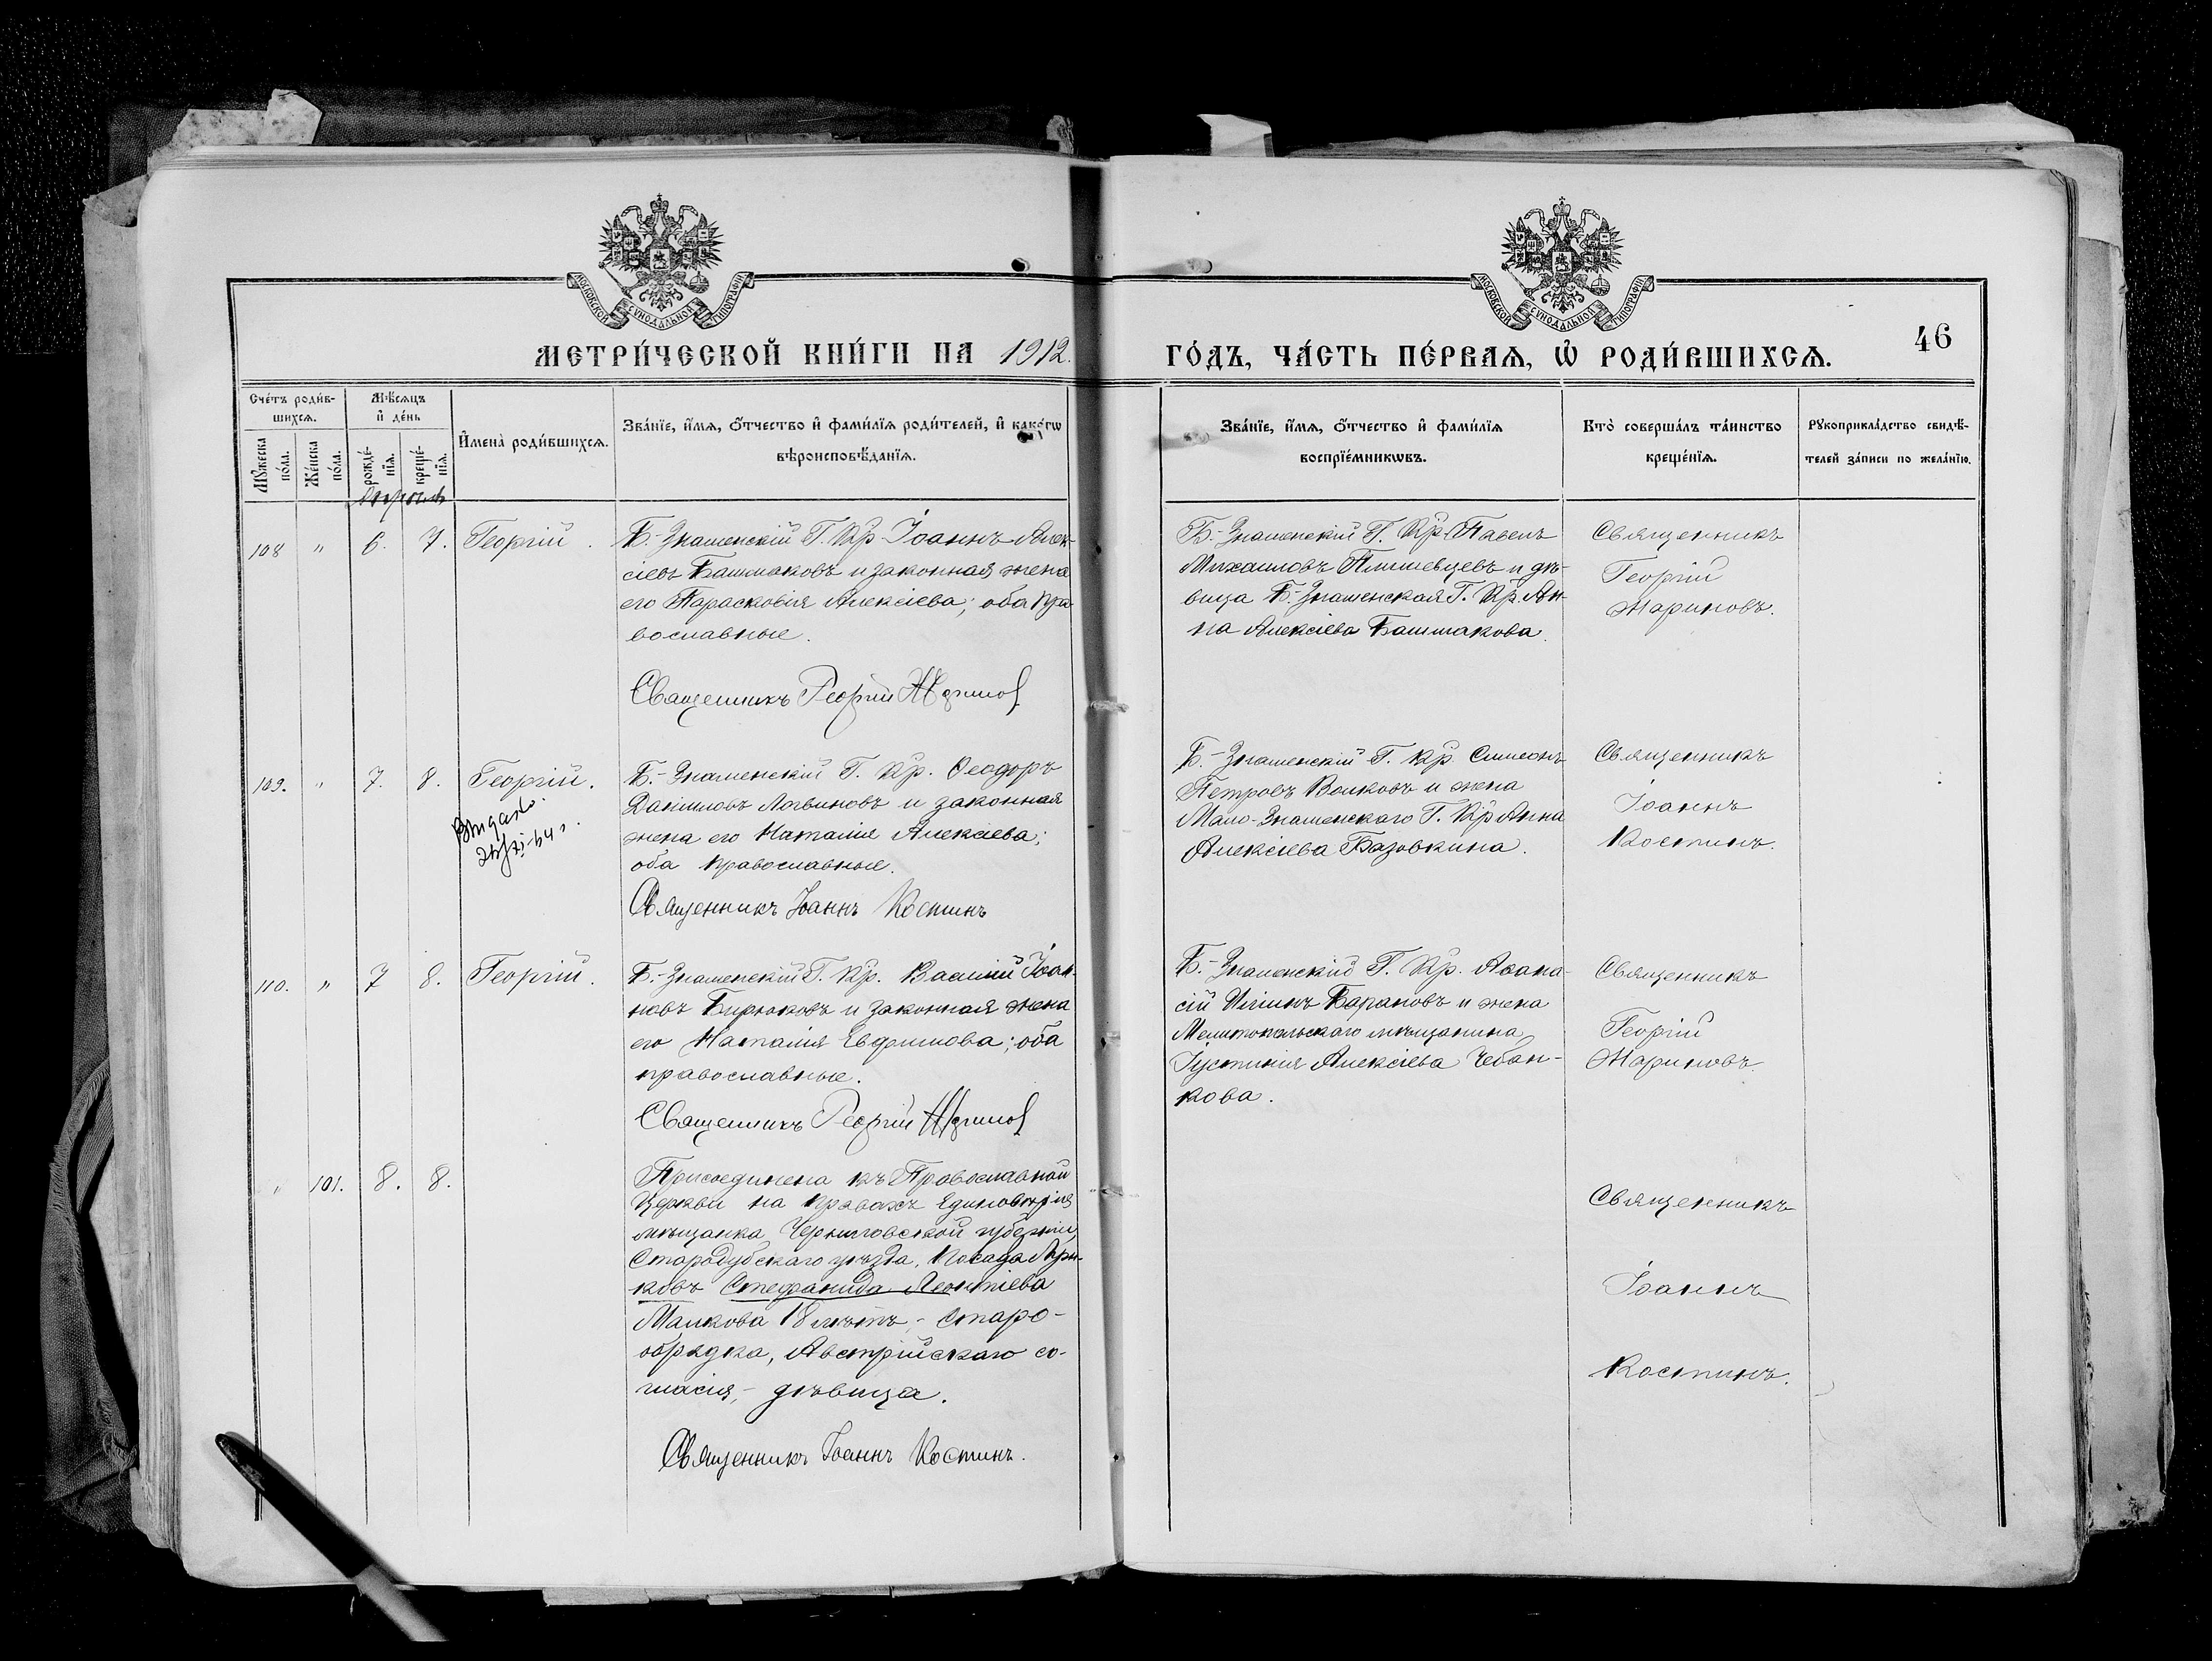 МОСКОВСКОЙ СѴНОДАЛЬНОЙ ТИПОГРАФІИ
МОСКОВСКОЙ СѴНОДАЛЬНОЙ ТИПОГРАФІИ
МЕТРИ́ЧЕСКОЙ КНИ́ГИ НА 1912.
ГО́ДЪ, ЧА́СТЬ ПЕ́РВАѦ, Ѽ РОДИ́ВШИХСѦ.
46
Сче́тъ роди́в-
шихсѧ.
Мѣ́сѧцъ
и҆ де́нь
И҆мена̀ роди́вшихсѧ.
Зва́нїе, и҆́мѧ, ѻ҆́тчество и҆ фами́лїѧ роди́телей, и҆ како́гѡ
вѣроисповѣ́данїѧ.
Мꙋ́жеска
по́ла.
Же́нска
по́ла.
рожде́-
нїѧ.
креще́-
нїѧ.
Зва́нїе, и҆́мѧ, ѻ҆́тчество и҆ фами́лїѧ
воспрїе́мникѡвъ.
Кто̀ соверша́лъ та́инство
креще́нїѧ.
Рꙋкоприкла́дство свидѣ́-
телей за́писи по жела́нїю.
Апрѣль
108 " 6. 7. Георгій.
Б.-Знаменскій Г. Кр. Іоаннъ Алек-
сіевъ Башмаковъ и законная жена
его Парасковія Алексіева; оба пра-
вославные.
Священникъ Георгій Жариновъ
Б.-Знаменскій Г. Кр. Павелъ
Михаиловъ Плишевцевъ и дѣ-
вица Б.-Знаменская Г. Кр. Ан-
на Алексіева Башмакова.
Священникъ
Георгій
Жариновъ.
109. " 7. 8. Георгій.
Выдано.
Б.-Знаменскій Г. Кр. Ѳеодоръ
Даніиловъ Логвиновъ и законная
жена его Наталія Алексіева;
оба православные.
Священникъ Іоаннъ Костинъ
Б.-Знаменскій Г. Кр. Симеонъ
Петровъ Волковъ и жена
Мало-Знаменскаго Г. Кр Анна
Алексіева Базовкина.
Священникъ
Іоаннъ
Костинъ.
110. " 7 8. Георгій.
Б.-Знаменскій Г. Кр. Василій Іоан-
новъ Бирюковъ и законная жена
его Наталія Евфимова; оба
православные.
Священникъ Георгій Жариновъ
Б.-Знаменскій Г. Кр. Аѳана-
сій Иліинъ Барановъ и жена
Мелитопольскаго мѣщанина
Іустинія Алексіева Чебан-
кова.
Священникъ
Георгій
Жариновъ.
" 101. 8. 8.
Присоединена къ Православной
Церкви на правахъ Единовѣрія
мѣщанка Черниговской губерніи,
Стародубскаго уѣзда, Посада Луж-
ковъ Стефанида Леонтіева
Малкова 18 лѣтъ, - старо-
обрядка, Австрійскаго со-
гласія, - дѣвица.
Священникъ Іоаннъ Костинъ.
Священникъ
Іоаннъ
Костинъ.